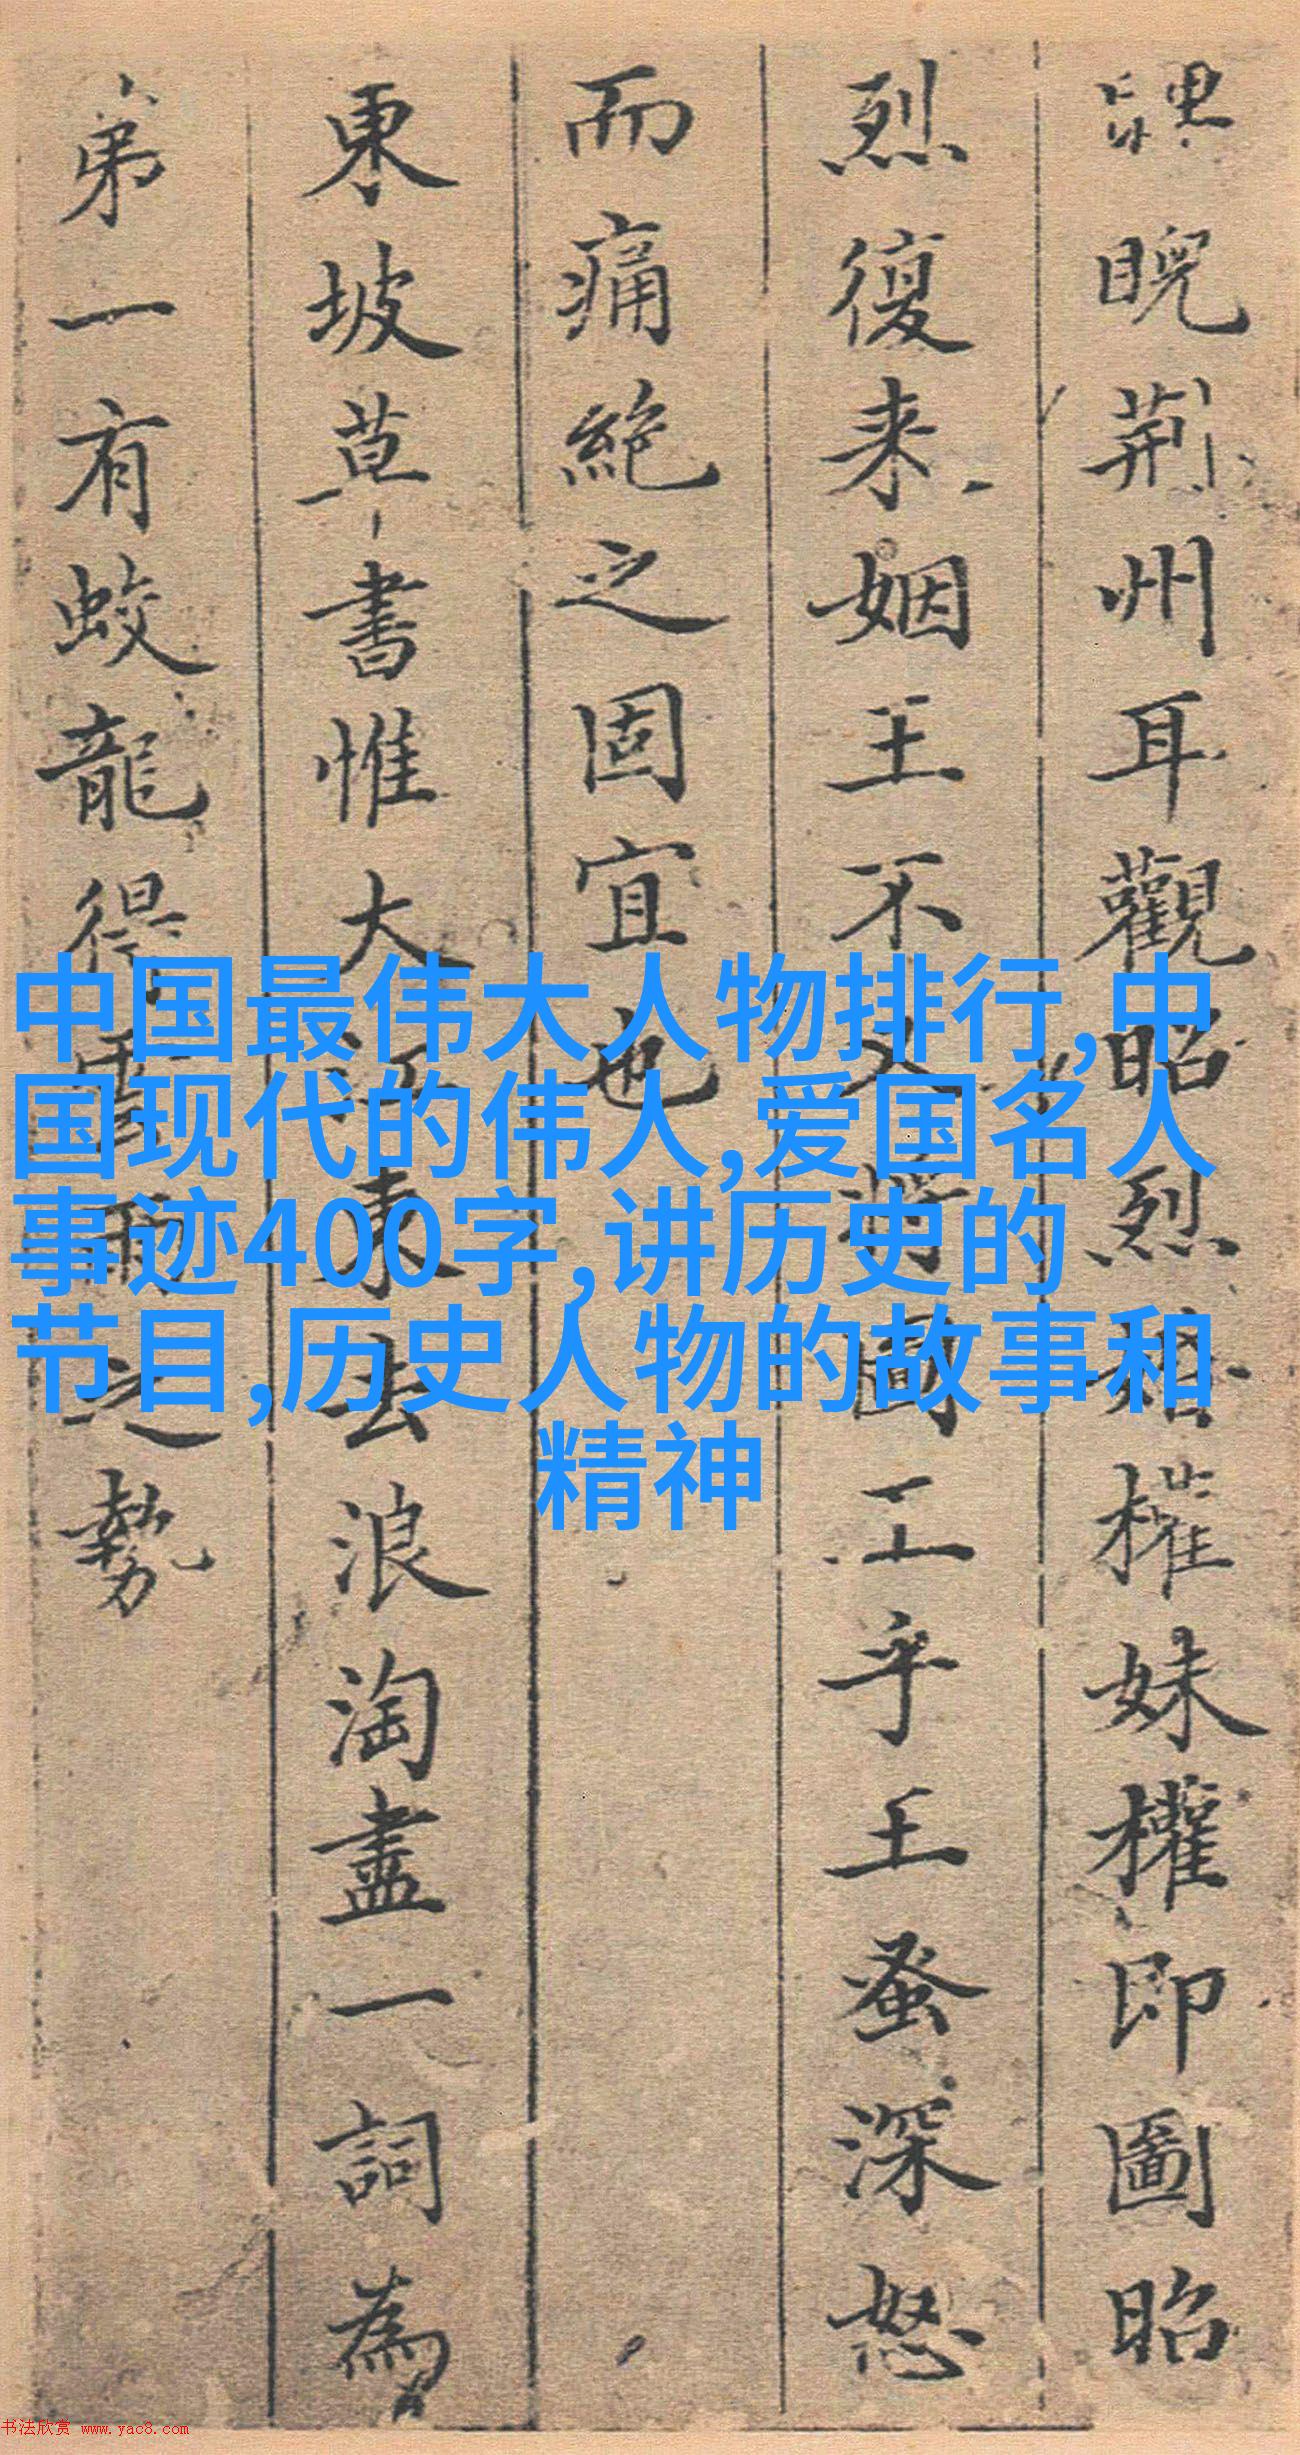 睨荆州耳觀昭烈權妹權即圖昭
烈復来姻王不圖工乎王蚤深怒
而痛絶之固宜也
東坡草書惟大江東去浪淘盡一詞為
弟一有蛟龍得雲雨之勢
中国最伟大人物排行,中
国现代的伟人,爱国名人
事迹400字,讲历史的
节目,历史人物的故事和
精神
书法欣赏 www.yac8.com